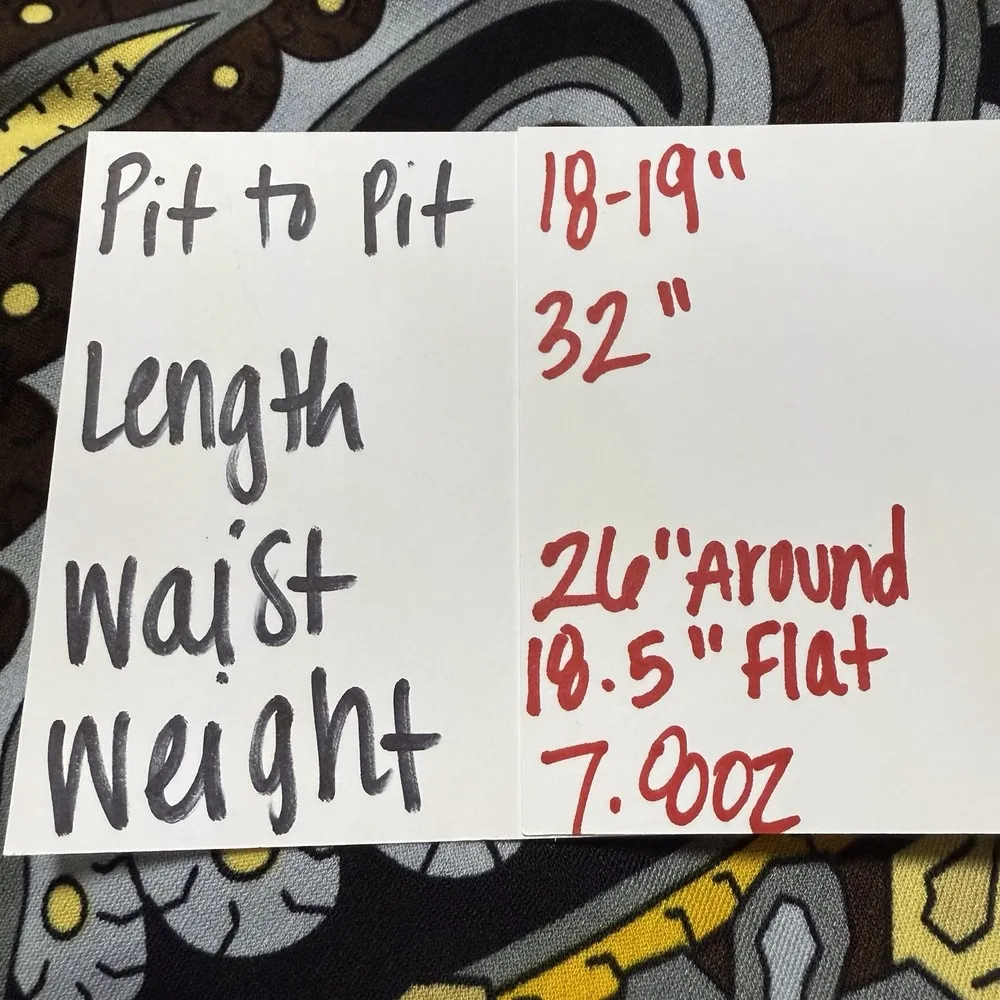 Pit to Pit 18-19"
Length 32"
Waist 26" Around
18.5" Flat
Weight 7.90oz